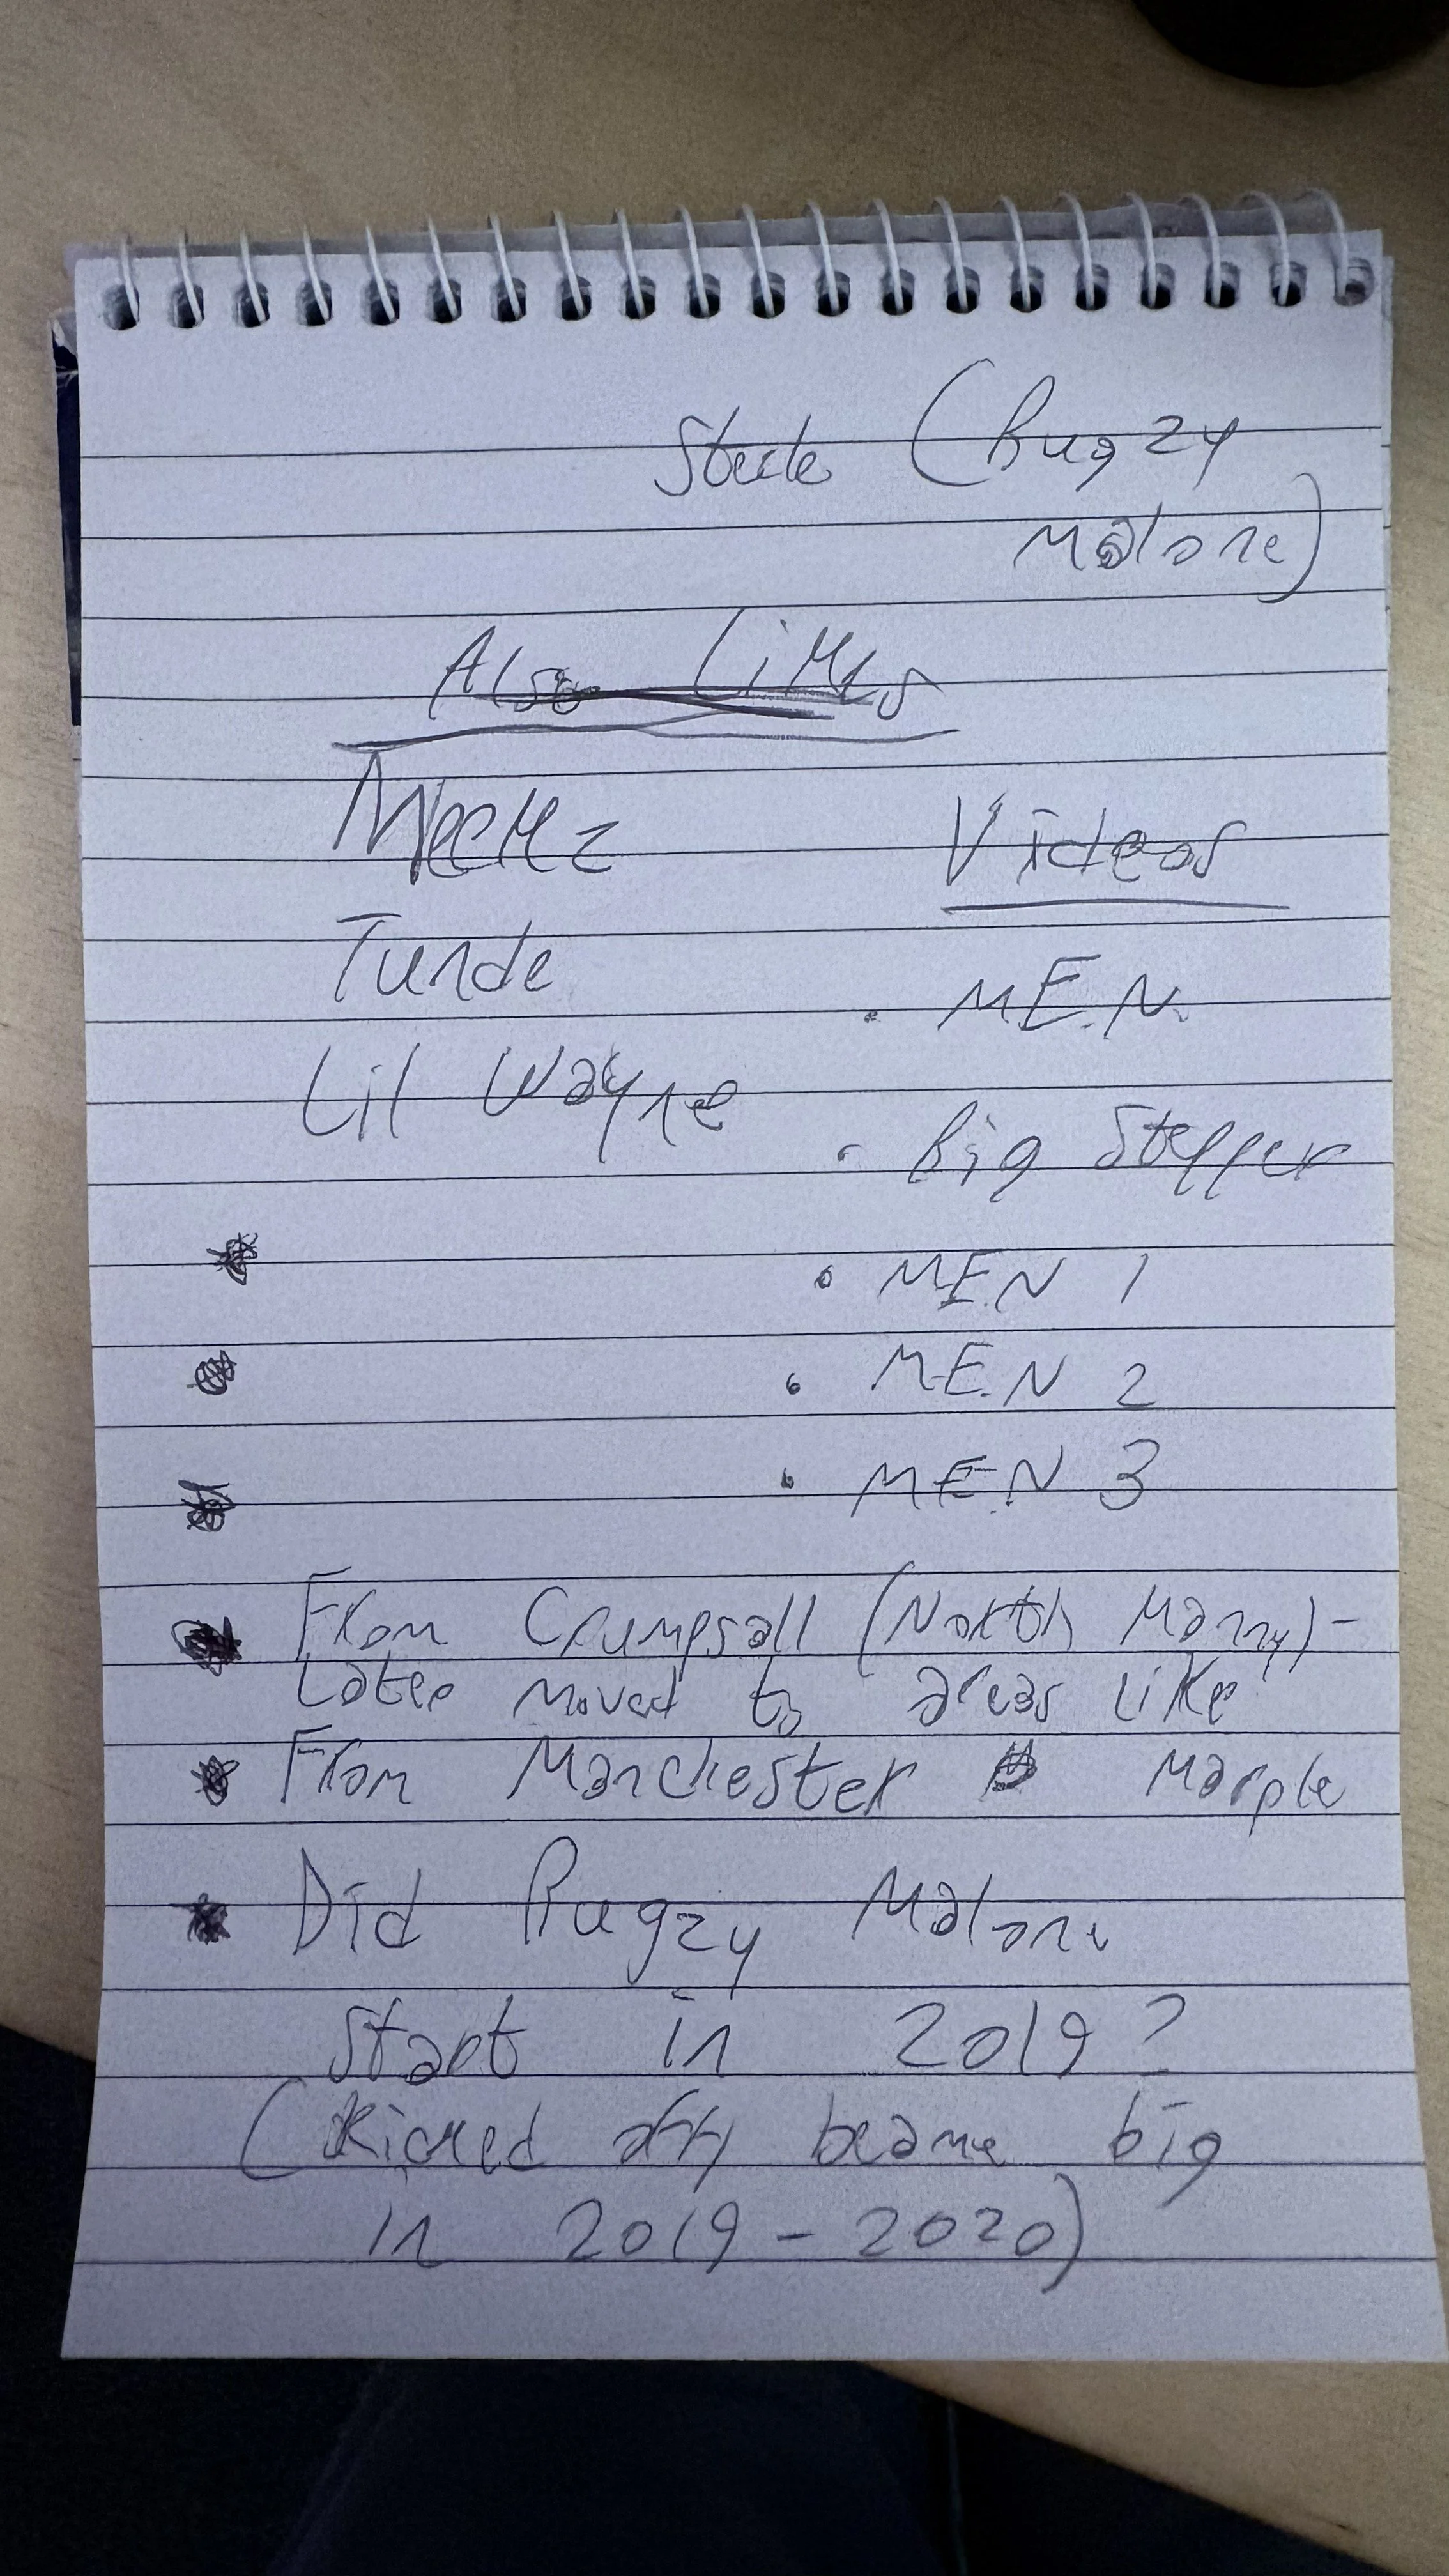 Steele (Bugzy
Malone)
Also Likes
Meekz
Tunde
Lil Wayne
Videos
• M.E.N.
• Big Stepper
• M.E.N 1
• M.E.N 2
• M.E.N 3
• From Crumpsall (North Manny) -
Later moved to areas like
• From Manchester Marple
• Did Bugzy Malone
start in 2019?
(Kicked off/ became big
in 2019 - 2020)